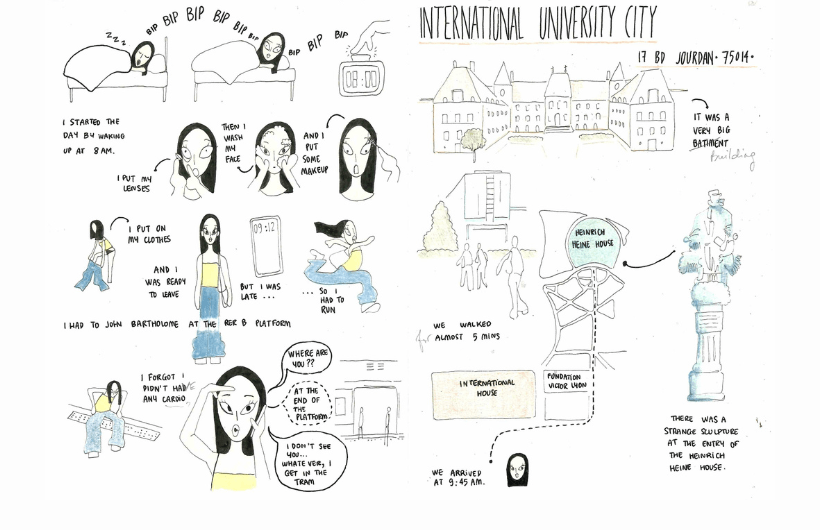 zzz
BIP BIP BIP BIP BIP BIP BIP
BIP BIP BIP
08:00
I STARTED THE
DAY BY WAKING
UP AT 8 AM.
I PUT MY
LENSES
THEN I
WASH
MY
FACE
AND I
PUT
SOME
MAKEUP
I PUT ON
MY CLOTHES
AND I
WAS READY
TO LEAVE
09:12
BUT I WAS
LATE ...
... SO I
HAD TO
RUN
I HAD TO JOHN BARTHOLOME AT THE RER B PLATFORM
I FORGOT I
DIDN'T HAD
ANY CARDIO
WHERE ARE
YOU ??
AT THE
END OF
THE
PLATFORM
I DON'T SEE
YOU...
WHATEVER, I
GET IN THE
TRAM
INTERNATIONAL UNIVERSITY CITY
17 BD JOURDAN. 75014.
IT WAS A
VERY BIG
BATIMENT
Building
HEINRICH
HEINE HOUSE
WE WALKED
for ALMOST 5 MINS
INTERNATIONAL
HOUSE
FONDATION
VICTOR LYON
THERE WAS A
STRANGE SCULPTURE
AT THE ENTRY OF
THE HEINRICH
HEINE HOUSE.
WE ARRIVED
AT 9:45 AM.